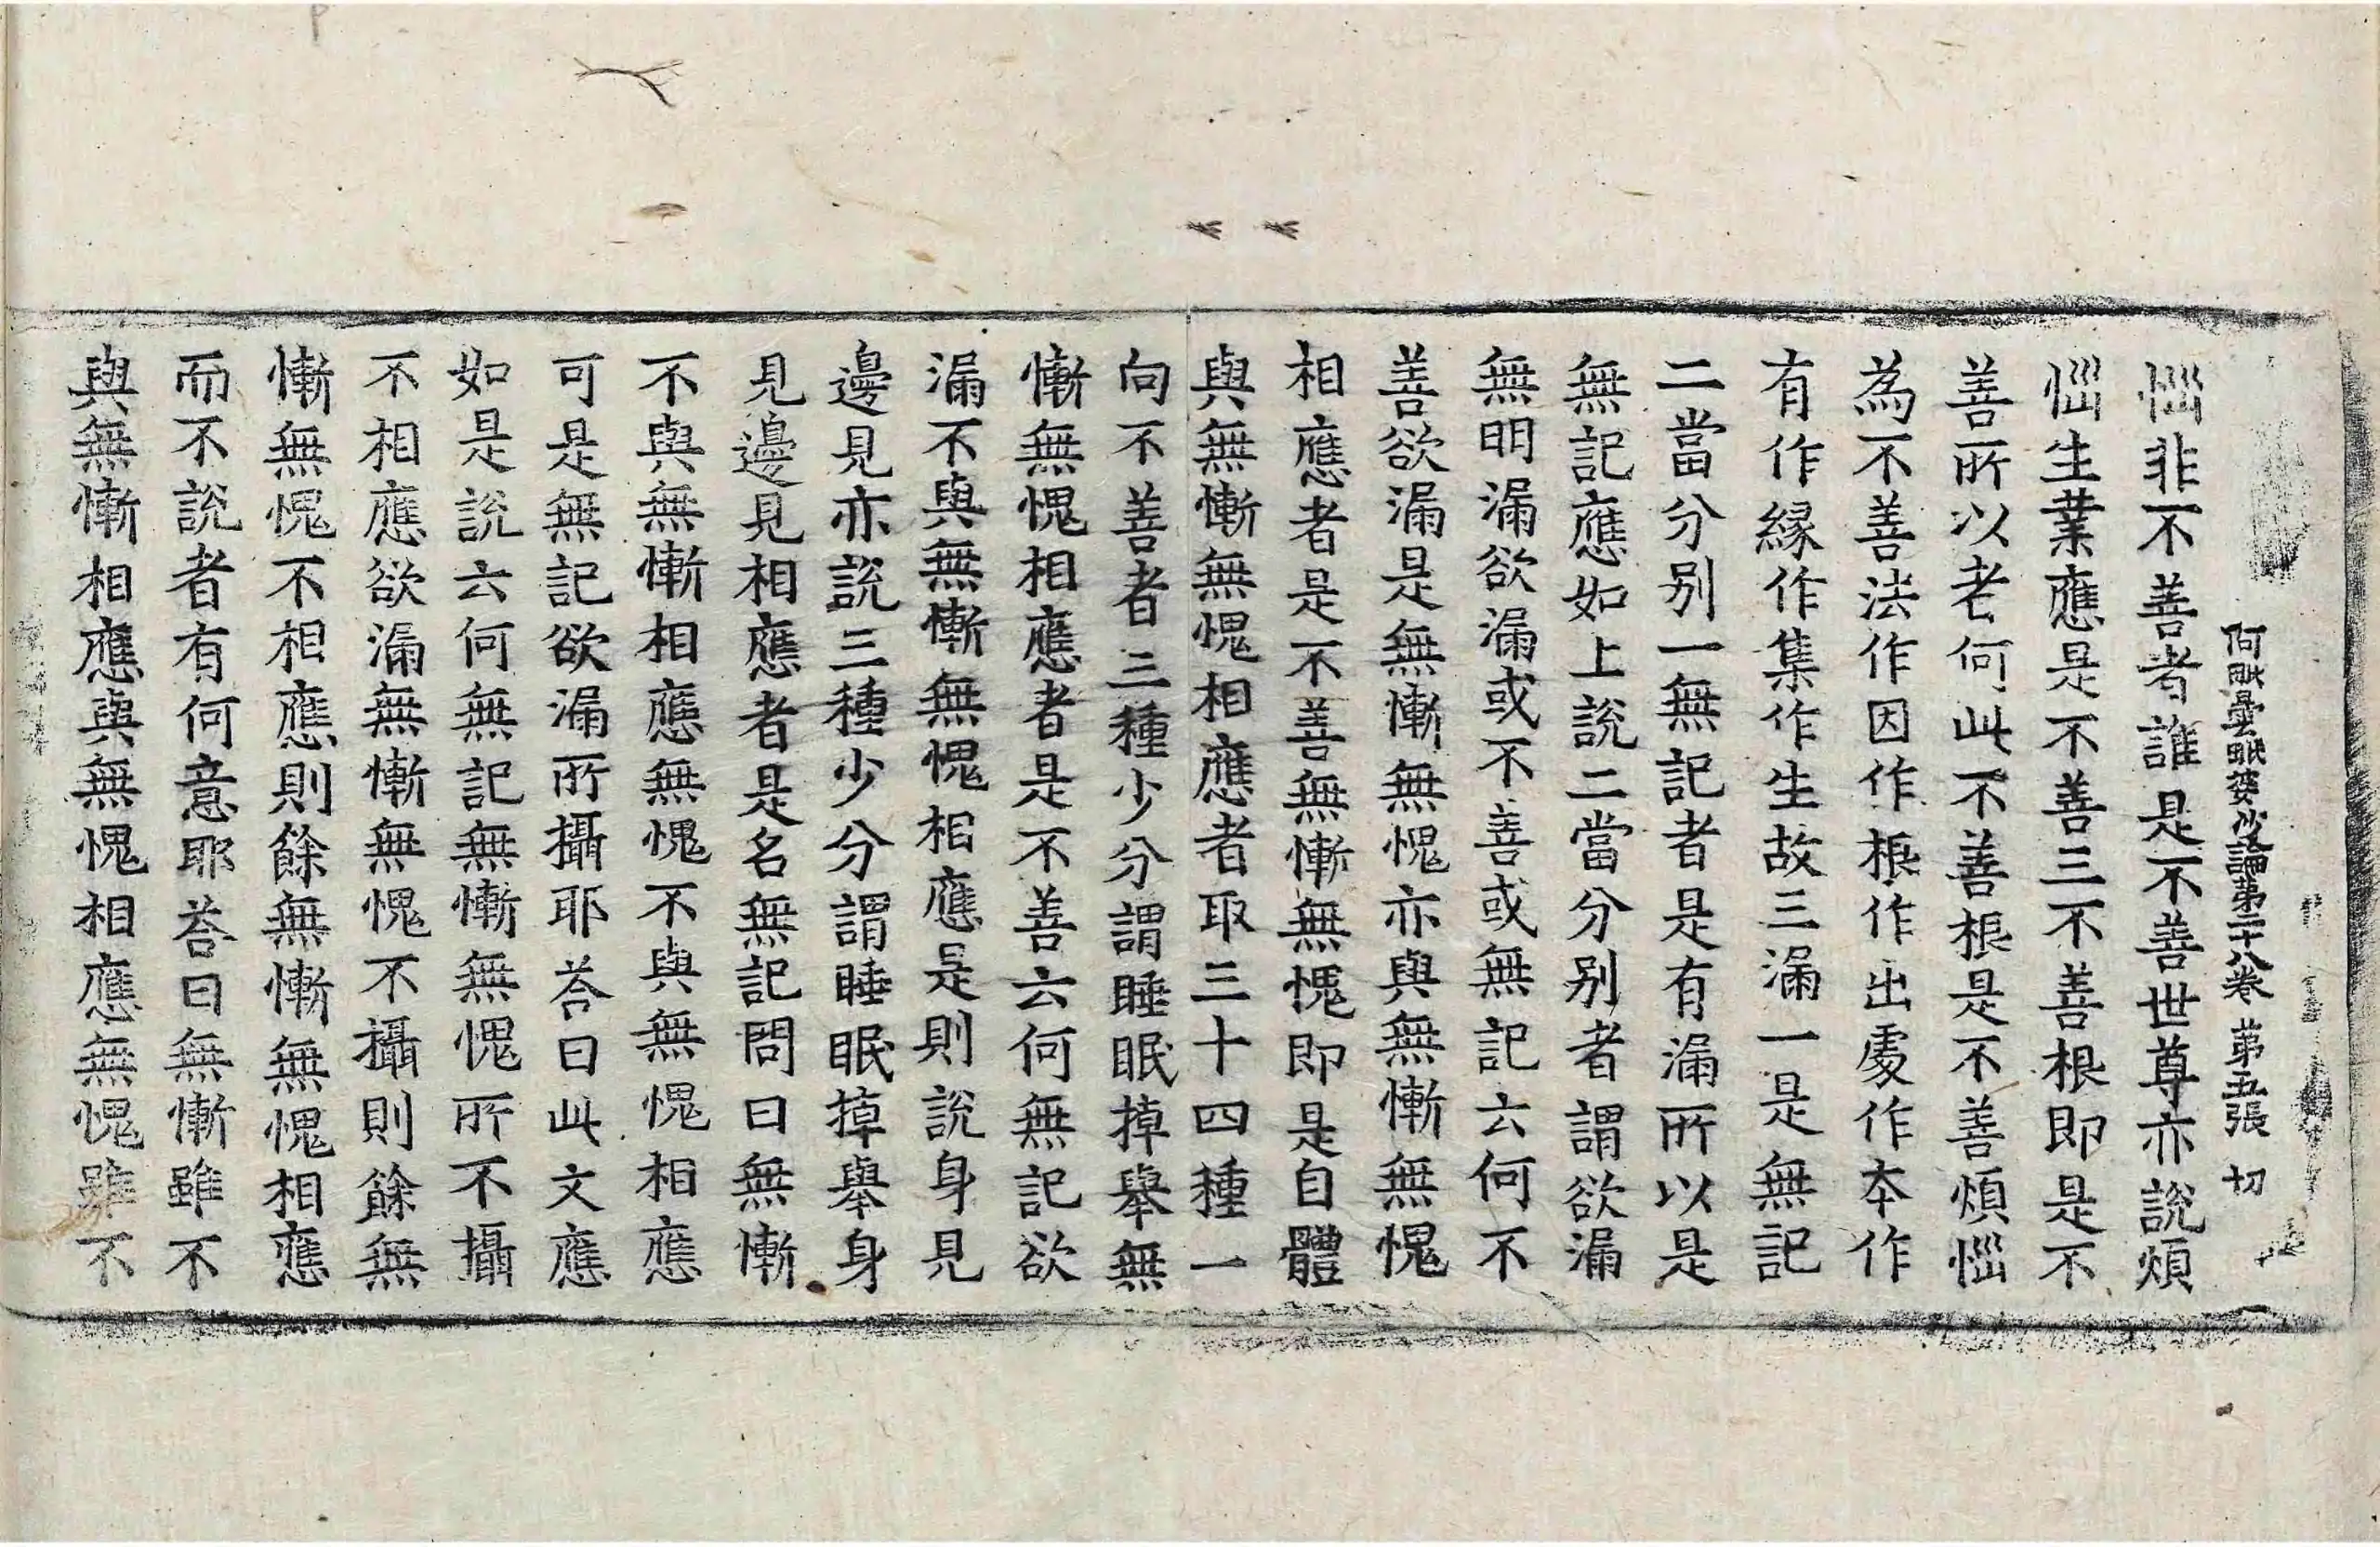 阿毗曇毗婆沙論第二十八卷 第五張 切
惱非不善者誰是不善世尊亦說煩
惱生業應是不善三不善根即是不
善所以者何此不善根是不善煩惱
為不善法作因作根作出處作本作
有作緣作集作生故三漏一是無記
二當分別一無記者是有漏所以是
無記應如上說二當分別者謂欲漏
無明漏欲漏或不善或無記云何不
善欲漏是無慚無愧亦與無慚無愧
相應者是不善無慚無愧即是自體
與無慚無愧相應者取三十四種一
向不善者三種少分謂睡眠掉舉無
慚無愧相應者是不善云何無記欲
漏不與無慚無愧相應是則說身見
邊見亦說三種少分謂睡眠掉舉身
見邊見相應者是名無記問曰無慚
不與無慚相應無愧不與無愧相應
可是無記欲漏所攝耶荅曰此文應
如是說云何無記無慚無愧所不攝
不相應欲漏無慚無愧不攝則餘無
慚無愧不相應則餘無慚無愧相應
而不說者有何意耶荅曰無慚雖不
與無慚相應與無愧相應無愧雖不